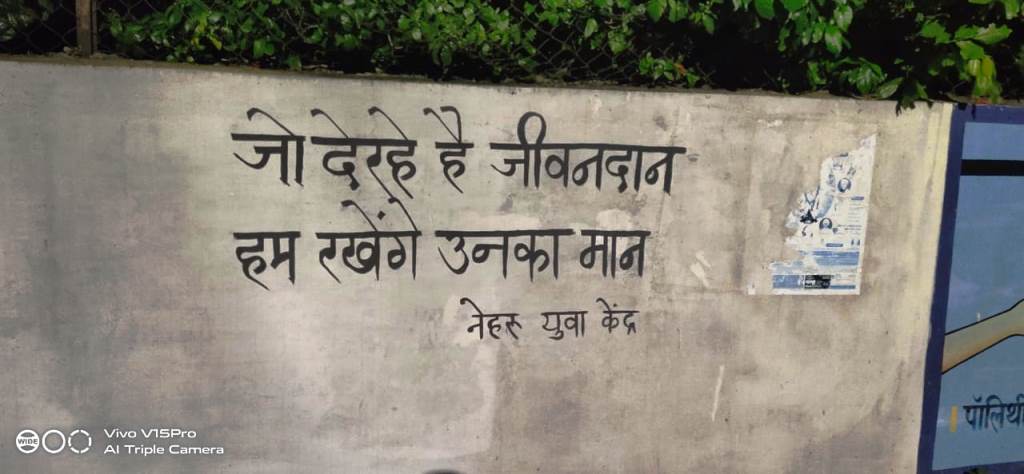 जो दे रहे है जीवनदान
हम रखेंगे उनका मान
नेहरू युवा केंद्र
पॉलिथी
Vivo V15Pro
AI Triple Camera
WIDE